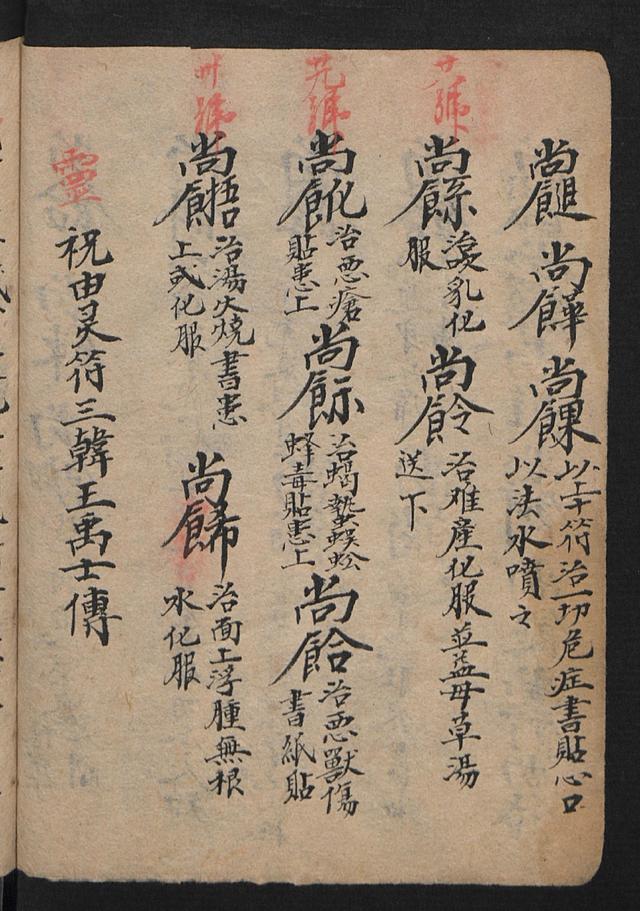 尚 尚 尚
以上十符治一切危症書貼心口
以法水噴之
號
尚
乳化
服
尚
治难產化服並益母草湯
送下
號
尚
治恶瘡
貼患上
尚
治蝎蟄蜈蚣
蜂毒貼患上
尚餄
治恶獸傷
書紙貼
卅號
尚
治湯火燒書患
上或化服
尚
治面上浮腫無根
水化服
靈
祝由灵符三韓王禹士傳